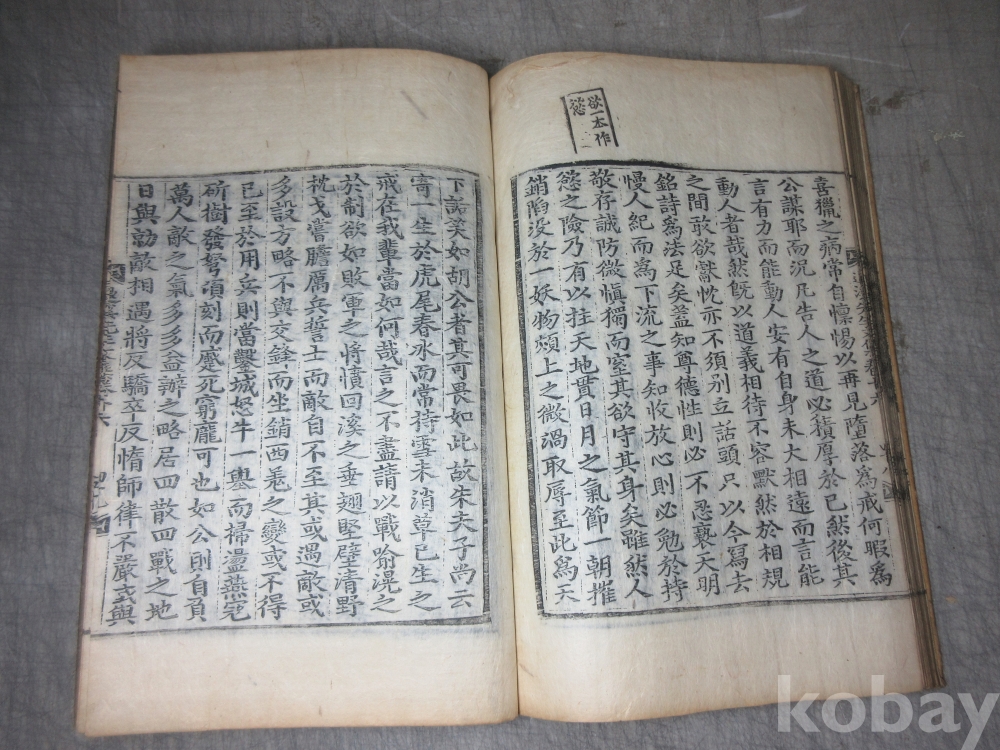 欲一本作
慾
喜獵之病常自懍惕以再見墮落爲戒何暇爲
公謀耶而況凡告人之道必積厚於已然後其
言有力而能動人安有自身未大相遠而言能
動人者哉然旣以道義相待不容默然於相規
之間敢欲獻忱亦不須別立話頭只以今寫去
銘詩爲法足矣蓋知尊德性則必不忍褻天明
慢人紀而爲下流之事知收放心則必勉於持
敬存誠防微愼獨而窒其欲守其身矣雖然人
慾之險乃有以拄天地貫日月之氣節一朝摧
銷陷沒於一妖物頰上之微渦取辱至此爲天
下詬笑如胡公者其可畏如此故朱夫子尚云
寄一生於虎尾春冰而常持雪未消草已生之
戒在我輩當如何哉言之不盡請以戰喩滉之
於制欲如敗軍之將憤回溪之垂翅堅壁淸野
枕戈嘗膽厲兵誓士而敵自不至其或遇敵或
多設方略不與交鋒而坐銷西羌之變或不得
已至於用兵則當鑿城怒牛一擧而掃盪燕寇
斫樹發弩頃刻而蹙死窮龐可也如公則自負
萬人敵之氣多多益辦之略居四散四戰之地
日與勍敵相遇將反驕卒反惰師律不嚴或與
kobay